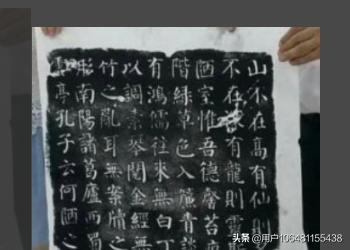 山不在高有仙則
不在有龍則靈
陋室惟吾德馨苔
階綠草色入簾青談
有鴻儒往來無白丁
以調素琴閱金經無
竹之亂耳無案牘之
形南陽諸葛廬西蜀
亭孔子云何陋之
头条 @用户106481155438